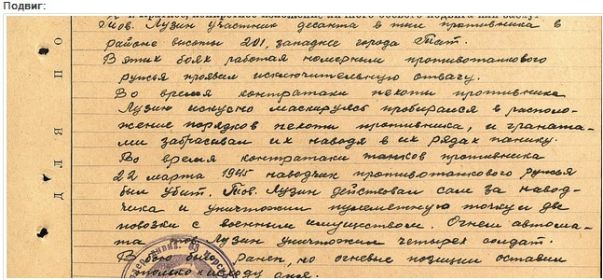 Подвиг:
Тов. Лузин участник десанта в тыл противника в
районе высоты 201, западнее города Тат.
В этих боях работая номерным противотанкового
ружья проявил исключительную отвагу.
Во время контратаки пехоты противника
Лузин искусно маскируясь пробирался в располо-
жение порядков пехоты противника, и граната-
ми забрасывал их наводя в их рядах панику.
Во время контратаки танков противника
22 марта 1945 наводчик противотанкового ружья
был убит. Тов. Лузин действовал сам за навод-
чика и уничтожил пулеметную точку и две
повозки с военным имуществом. Огнем автома-
та тов. Лузин уничтожил четырех солдат.
В бою был ранен, но огневые позиции оставил
только к исходу дня.